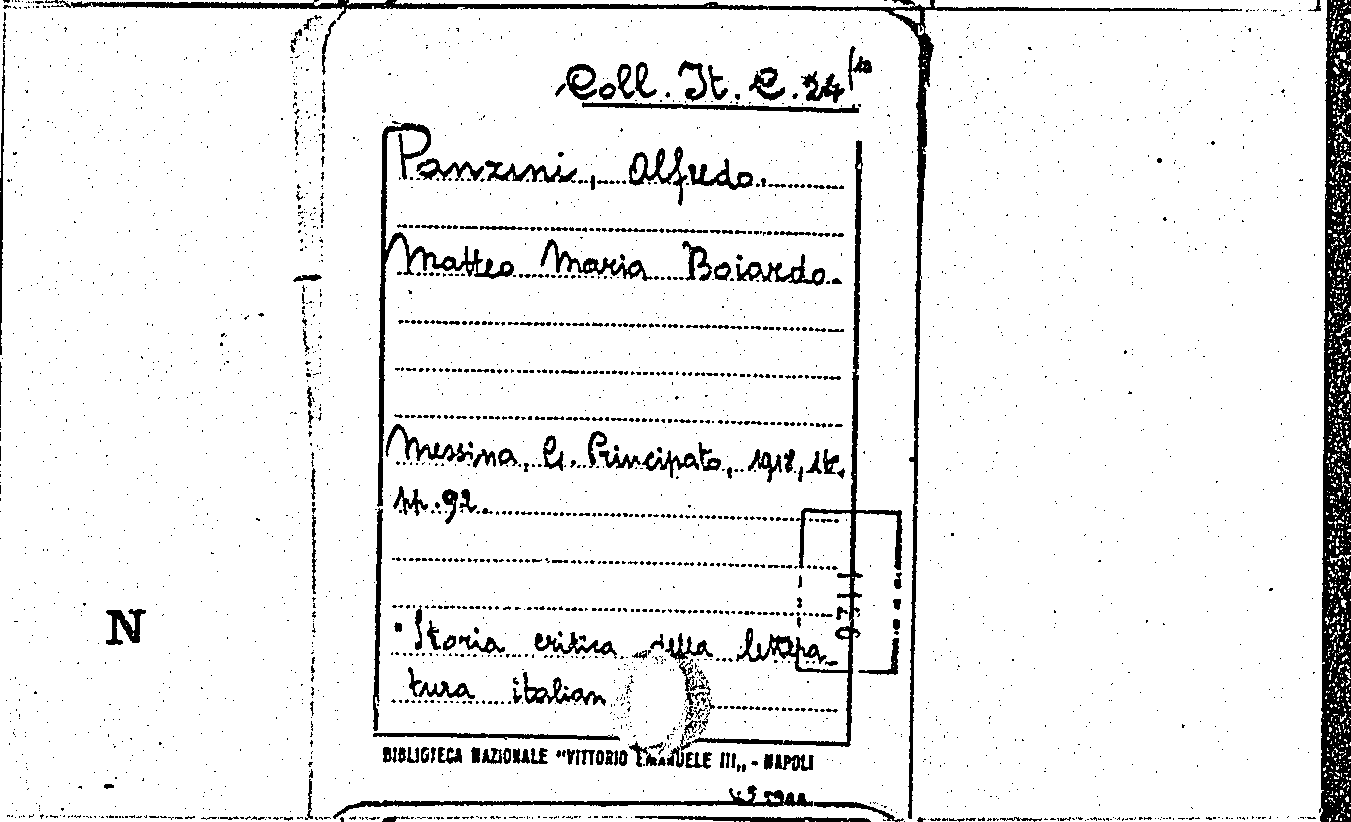 Coll. It. C. 24
Panzini, Alfredo.
Matteo Maria Boiardo.
Messina, G. Principato, 1918, 16.
pp. 92.
"Storia critica della lettera-
tura italian
N
BIBLIOTECA NAZIONALE "VITTORIO EMANUELE III„ - NAPOLI